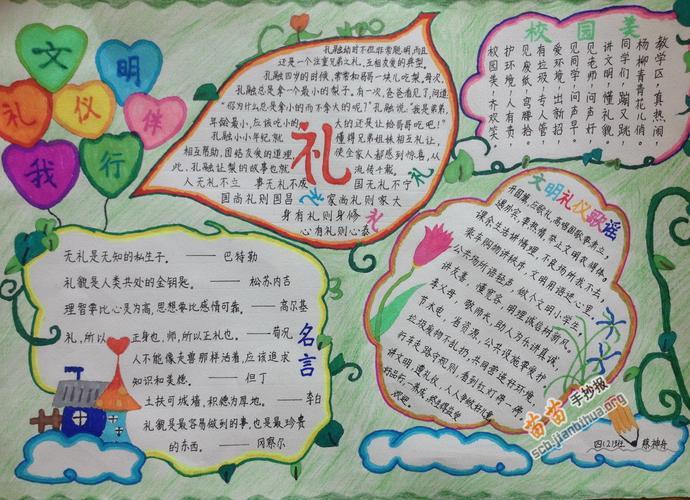 文明
礼仪伴
我行
孔融幼时不但非常聪明,而且
还是一个注重兄弟之礼、互相友爱的典型。
孔融四岁的时候,常常和哥哥一块儿吃梨。每次,
孔融总是拿一个最小的梨子。有一次,爸爸看见了,问道:
“你为什么总是拿小的而不拿大的呢?”孔融说:“我是弟弟,
年龄最小,应该吃小的 大的还是让给哥哥吃吧!”
孔融小小年纪就 懂得兄弟姐妹相互礼让、
相互帮助,团结友爱的道理, 使全家人都感到惊喜。从
此,孔融让梨的故事也就 流传千载。
礼
人无礼不立 事无礼不成 国无礼不宁
国尚礼则国昌 家尚礼则家大
身有礼则身修
心有礼则心泰
礼
礼
校园美
教学区,真热闹
杨柳青青花儿俏。
同学们,蹦又跳,
讲文明,懂礼貌。
见老师,问声好,
见同学,问声早。
爱环境,出新招
有垃圾,专人管
见废纸,弯腰拾
护环境,人有责
校园美,齐欢笑。
名言
无礼是无知的私生子。 ——巴特勒
礼貌是人类共处的金钥匙。 ——松苏内吉
理智要比心灵为高,思想要比感情可靠。——高尔基
礼,所以 正身也,师,所以正礼也。——荀况
人不能像走兽那样活着,应该追求
知识和美德。 ——但丁
土扶可城墙,积德为厚地。——李白
礼貌是最容易做到的事,也是最珍贵
的东西。——冈察尔
文明礼仪歌谣
升国旗,应敬礼,高唱国歌要肃立。
课余生活讲情理,不良场所我不去,
乘车购物讲秩序,文明用语进心里。
公共场所语轻声,做个文明小学生。
讲友善,懂宽容,明理诚信树新风。
孝父母,敬师长,助人为乐讲真诚。
节水电,省资源,公共设施要爱护
垃圾废物不乱扔,共同营造好环境。
行手走路守规则
讲文明,遵礼仪,人人争做好儿童。
好品行,一养成,终生得益
苗苗手抄报
scb.jianbihua.org
四(2)班